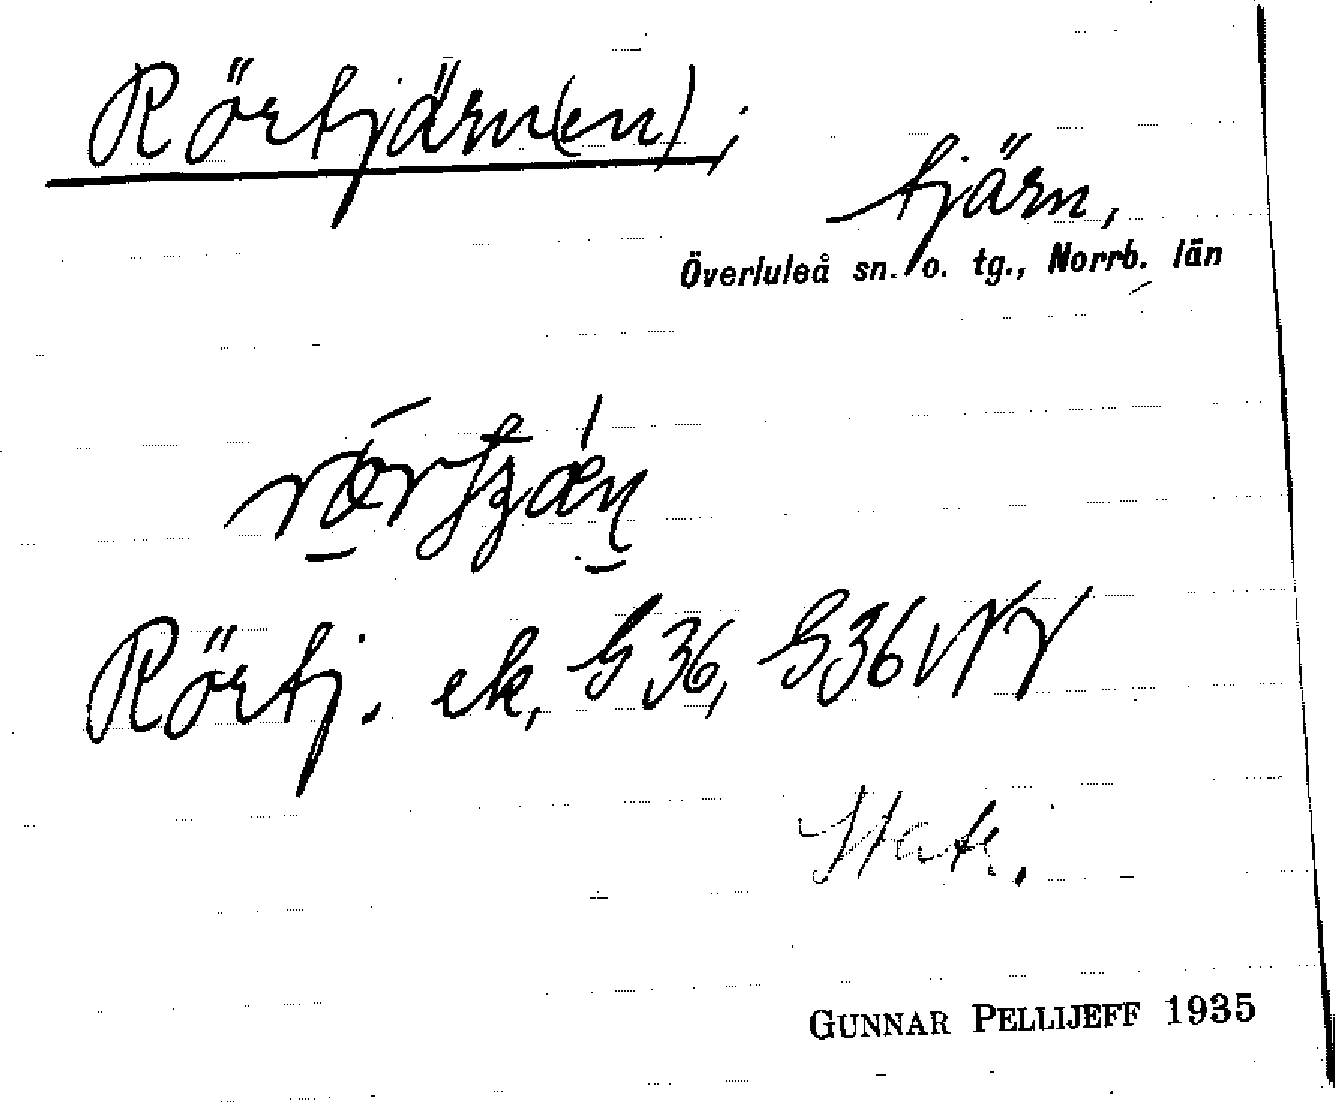 Rörtjärn(en);
tjärn,
Överluleå sn. o. tg., Norrb. län
Rörtj. ek, G 36, G36VNV
GUNNAR PELLIJEFF 1935